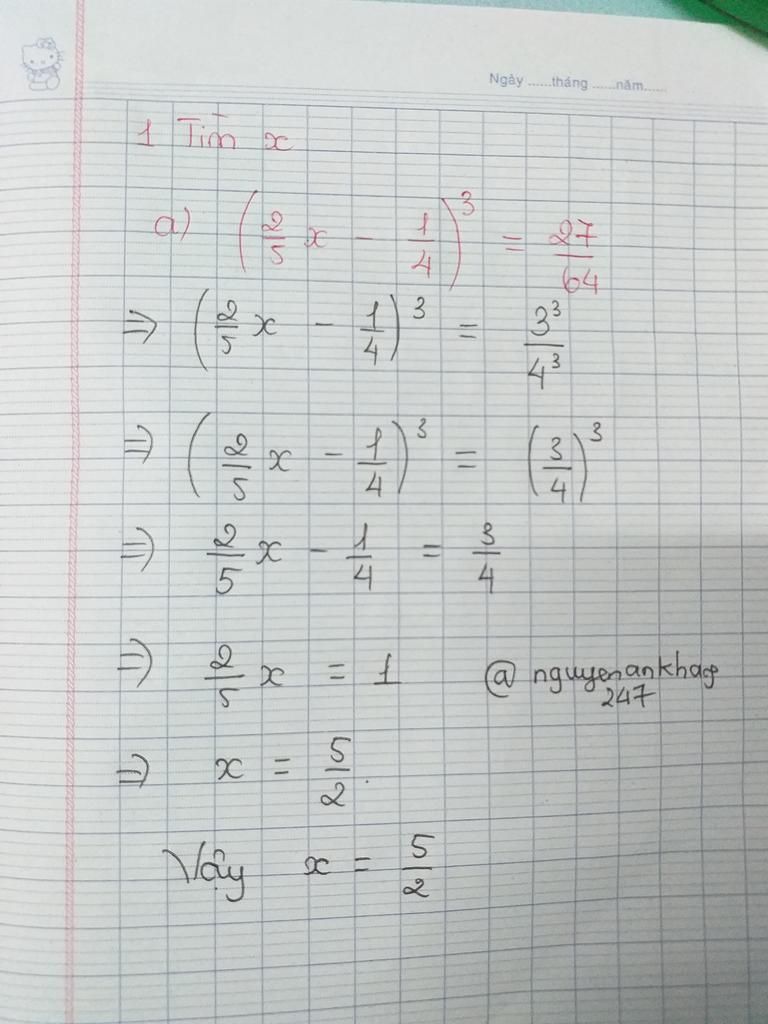 Ngày ......tháng ......năm......
1 Tìm x
a) (2/5 x - 1/4)^3 = 27/64
⇒ (2/5 x - 1/4)^3 = 3^3/4^3
⇒ (2/5 x - 1/4)^3 = (3/4)^3
⇒ 2/5 x - 1/4 = 3/4
⇒ 2/5 x = 1 @nguyenankhag
247
⇒ x = 5/2.
Vậy x = 5/2